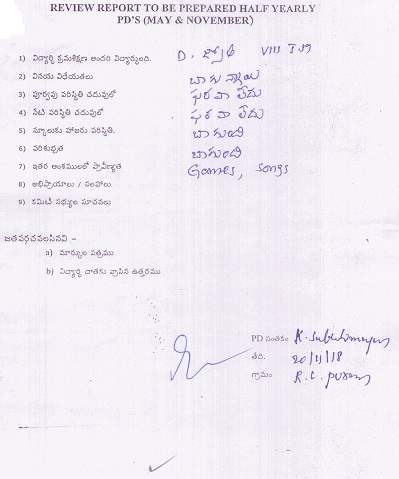 REVIEW REPORT TO BE PREPARED HALF YEARLY
PD'S (MAY & NOVEMBER)
1) విద్యార్థి క్రమశిక్షణ అందరి విద్యార్థులది. D. జ్యోతి VIII
2) వినయ విధేయతలు బాగున్నాయి
3) పూర్వపు పరిస్థితి చదువులో ఫరవాలేదు
4) నేటి పరిస్థితి చదువులో ఫరవాలేదు
5) స్కూలుకు హాజరు పరిస్థితి. బాగుంది
6) పరిశుభ్రత బాగుంది
7) ఇతర అంశములలో ప్రావీణ్యత Games, songs
8) అభిప్రాయాలు / సలహాలు
9) కమిటీ సభ్యుల సూచనలు
జతపర్చవలసినవి –
a) మార్కుల పత్రము
b) విద్యార్థి దాతకు వ్రాసిన ఉత్తరము
PD సంతకం
తేది. 20/11/18
గ్రామం R.C. puram